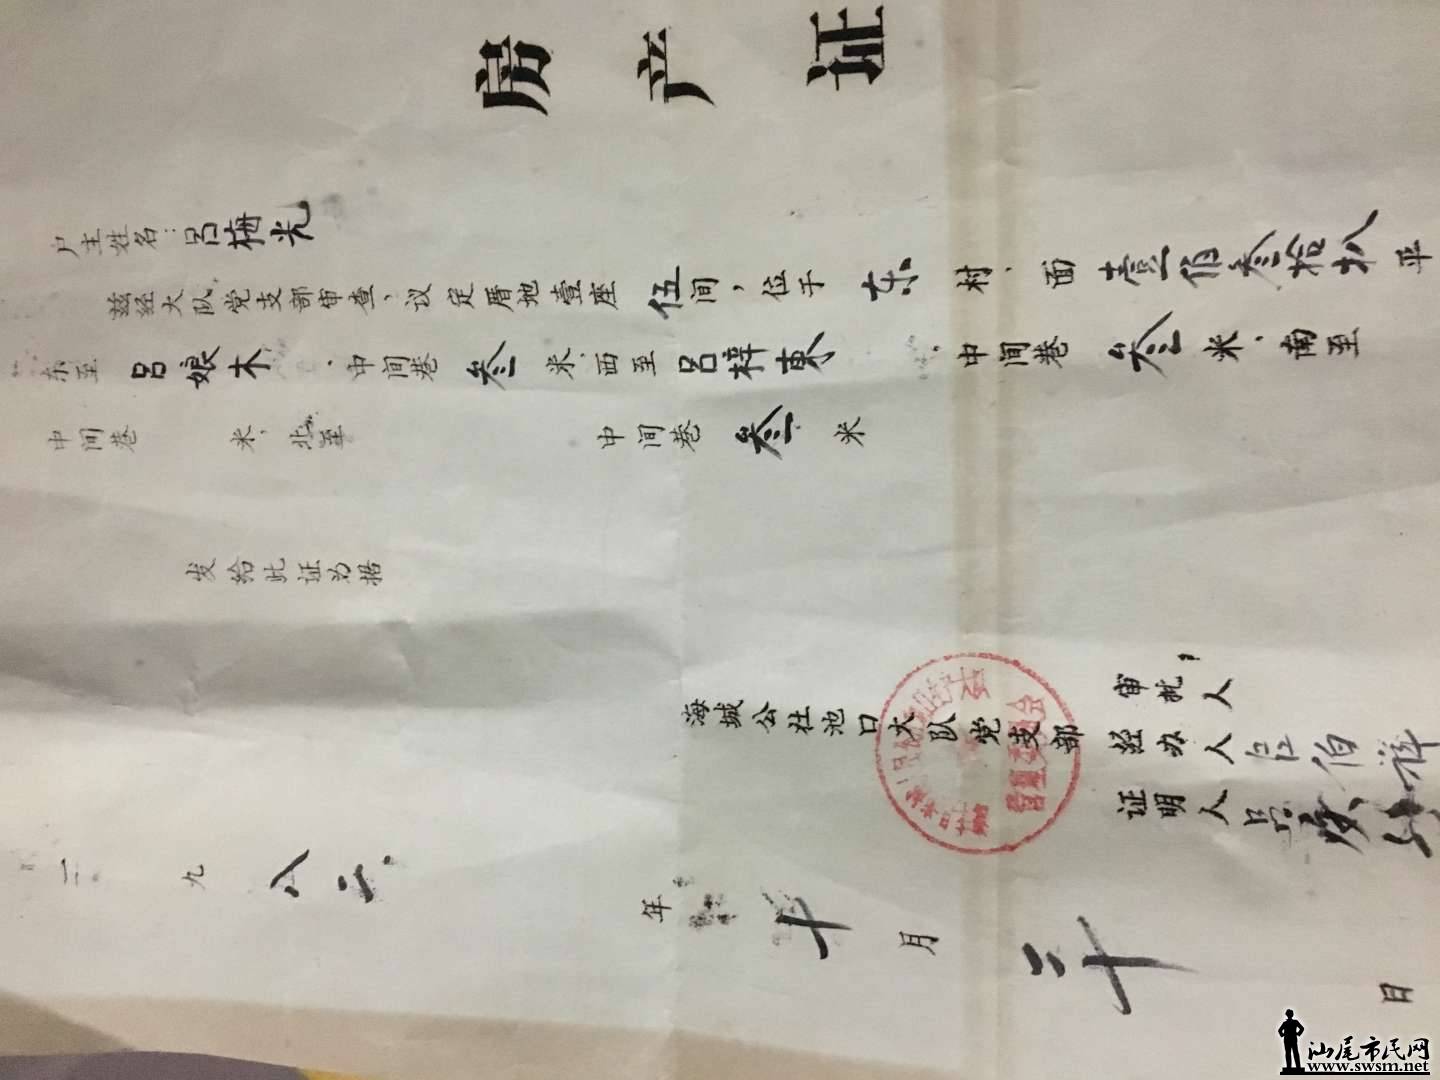 房产证
户主姓名：吕梅光
兹经大队，党支部审查，议定厝地壹座伍间，位于东村，面壹佰叁拾扒平
东至吕娘木，中间巷叁米，西至吕梓東，中间巷叁米，南至
中间巷 米，北至 中间巷叁米
发给此证为据
海城公社池口大队党支部
管理委员会
审批人
经办人吕伯祥
证明人吕
一九八二年十月二十日
汕尾市民网
www.swsm.net